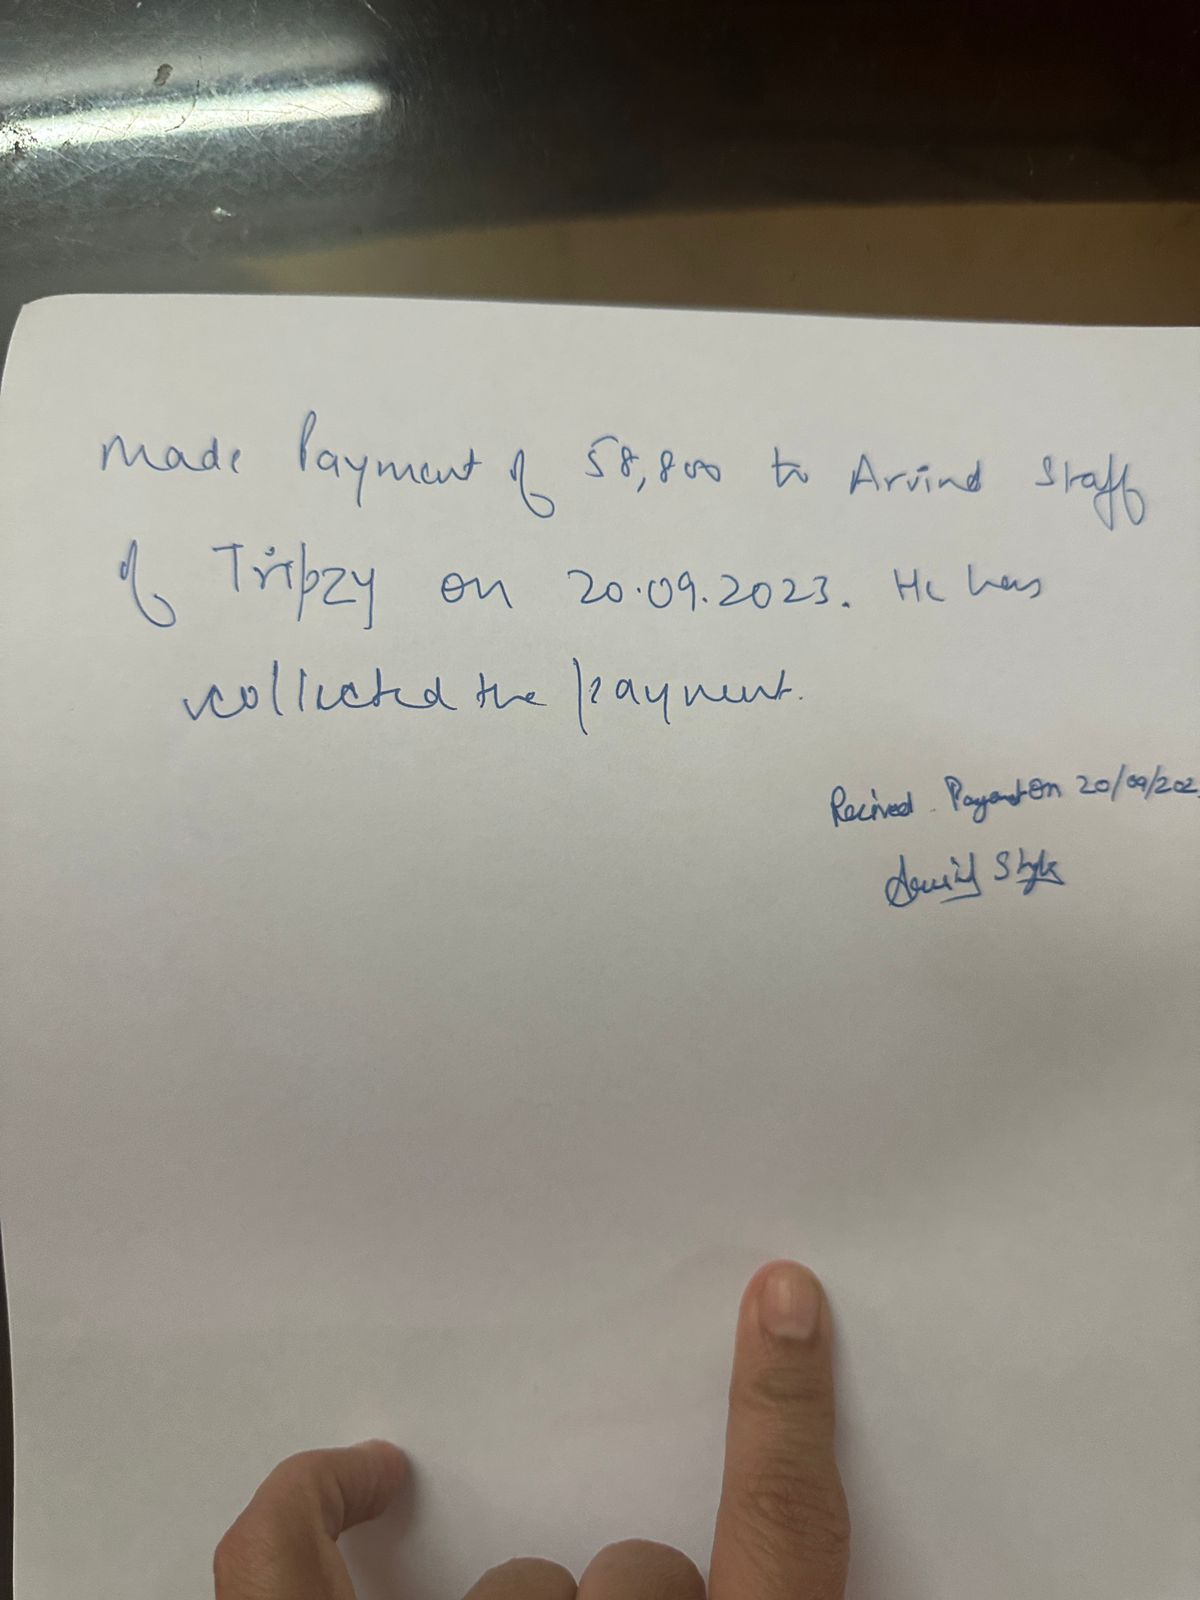 Made Payment of 58,800 to Arvind Staff
of Tripzy on 20.09.2023. He has
collected the payment.
Recived Payment On 20/09/202
Arvind